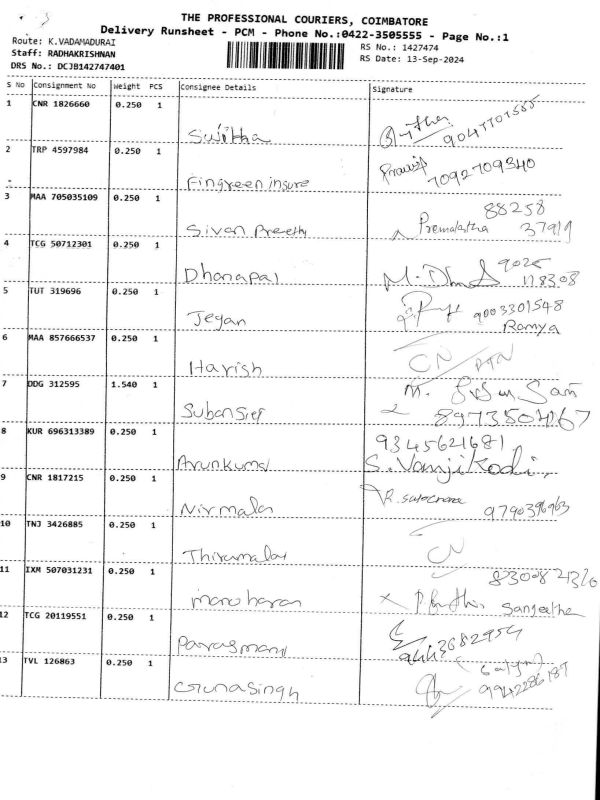 THE PROFESSIONAL COURIERS, COIMBATORE
Delivery Runsheet - PCM - Phone No.:0422-3505555 - Page No.:1
Route: K.VADAMADURAI
RS No.: 1427474
Staff: RADHAKRISHNAN
RS Date: 13-Sep-2024
DRS No.: DCJB142747401
S No Consignment No Weight PCS Consignee Details Signature
1 CNR 1826660 0.250 1
9047701585
2 TRP 4597984 0.250 1
7092709340
Fingreen insure
3 MAA 705035109 0.250 1
88258
Sivan Preethi Premalatha 37919
4 TCG 50712301 0.250 1
9025
Dhanapal 17 8308
5 TUT 319696 0.250 1
9003301548
Jeyan Ramya
6 MAA 857666537 0.250 1
CN
Harish
7 DDG 312595 1.540 1
8973504167
8 KUR 696313389 0.250 1
9345621681
Arunkumar S. Vanjikodi.
9 CNR 1817215 0.250 1
Nirmala 9790396963
10 TNJ 3426885 0.250 1
CN
Thirumalai
11 IXM 507031231 0.250 1
manoharan Sangeetha
12 TCG 20119551 0.250 1
9443682954
Parasmani
13 TVL 126863 0.250 1
9942286187
Gunasingh